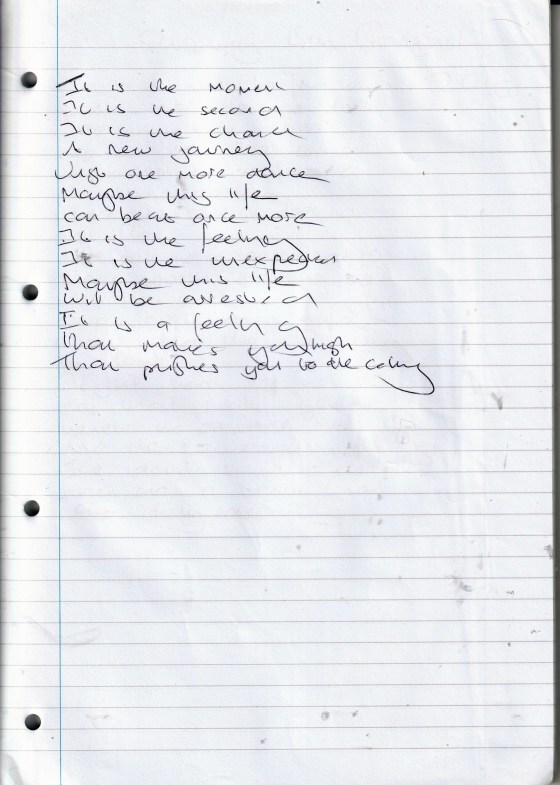 It is the moment
It is the second
It is the chance
A new journey
Just one more dance
Maybe this life
can beat once more
It is the feeling
It is the unexpected
Maybe this life
will be arrested
It is a feeling
That makes you high
That pushes you to the